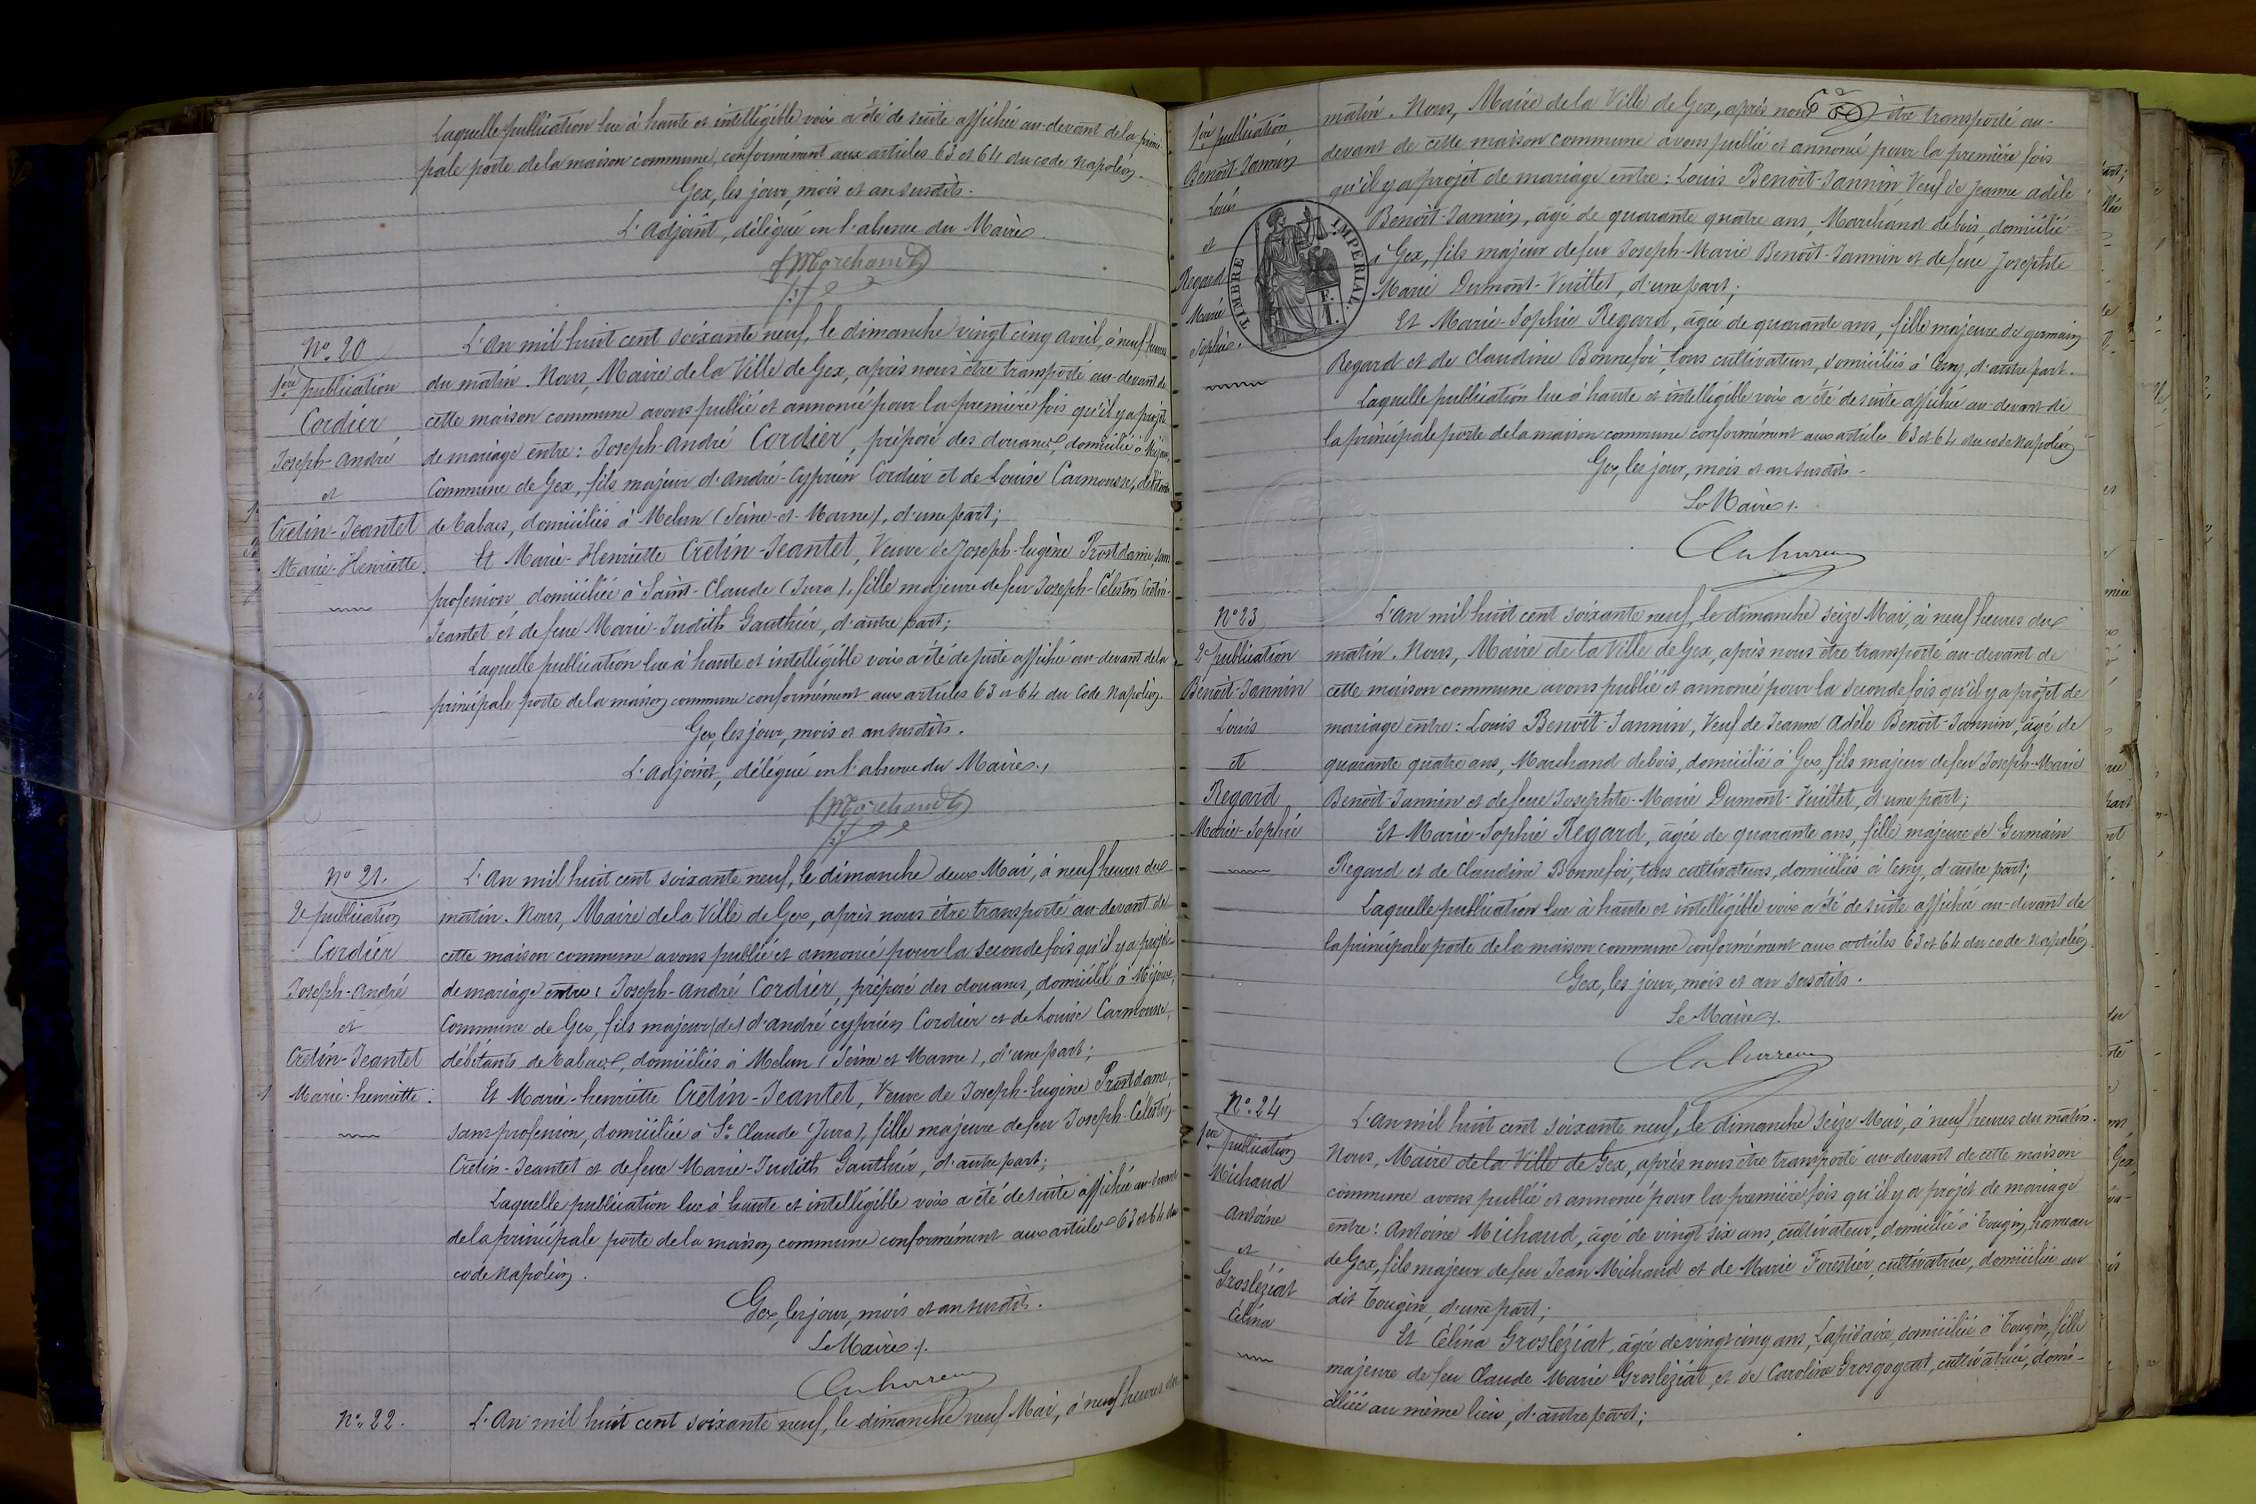 laquelle publication lue à haute et intelligible voix a été de suite affichée au-devant de la princi
pale porte de la maison commune, conformément aux articles 63 et 64 du code Napoléon.
Gex, les jour, mois et an susdits.
L'Adjoint, délégué en l'absence du Maire
Marchand
N° 20
1ère publication
Cordier
Joseph-André
et
Cretin-Jeantet
Marie-Henriette.
L'An mil huit cent soixante neuf, le dimanche vingt cinq avril, à neuf heures
du matin. Nous, Maire de la Ville de Gex, après nous être transporté au-devant de
cette maison commune avons publié et annoncé pour la première fois qu'il y a projet
de mariage entre: Joseph-André Cordier, préposé des douanes, domicilié à Mijoux,
Commune de Gex, fils majeur d'André-Cyprien Cordier et de Louise Carmousse, débitants
de Tabacs, domiciliés à Melun (Seine-et-Marne), d'une part;
Et Marie-Henriette Cretin-Jeantet, Veuve de Joseph-Eugène Prostdame, sans
profession, domiciliée à Saint-Claude (Jura), fille majeure de feu Joseph-Célestin Cretin-
Jeantet et de feue Marie-Judith Gauthier, d'autre part;
Laquelle publication lue à haute et intelligible voix a été de suite affichée au-devant de la
principale porte de la maison commune conformément aux articles 63 et 64 du Code Napoléon.
Gex, les jour, mois et an susdits.
L'adjoint, délégué en l'absence du Maire.
Marchand
N° 21.
2e publication
Cordier
Joseph-André
et
Cretin-Jeantet
Marie-henriette.
L'An mil huit cent soixante neuf, le dimanche deux Mai, à neuf heures du
matin. Nous, Maire de la Ville de Gex, après nous être transporté au-devant de
cette maison commune avons publié et annoncé pour la seconde fois qu'il y a projet
de mariage entre: Joseph-André Cordier, préposé des douanes, domicilié à Mijoux,
Commune de Gex, fils majeur (de) d'André cyprien Cordier et de Louise Carmousse,
débitants de Tabacs, domiciliés à Melun (Seine et Marne), d'une part;
Et Marie-henriette Cretin-Jeantet, Veuve de Joseph-Eugène Prostdame,
sans profession, domiciliée à St Claude (Jura), fille majeure de feu Joseph-Célestin
Cretin-Jeantet et de feue Marie-Judith Gauthier, d'autre part;
Laquelle publication lue à haute et intelligible voix a été de suite affichée au-devant
de la principale porte de la maison commune conformément aux articles 63 et 64 du
code Napoléon.
Gex, les jour, mois et an susdits.
Le Maire
N° 22.
L'An mil huit cent soixante neuf, le dimanche neuf Mai, à neuf heures du
1ère publication
Benoit-Jannin
Louis
et
Regard
Marie
Sophie.
TIMBRE IMPERIAL
matin. Nous, Maire de la Ville de Gex, après nous être transporté au-
devant de cette maison commune avons publié et annoncé pour la première fois
qu'il y a projet de mariage entre: Louis Benoit-Jannin Veuf de Jeanne adèle
Benoit-Jannin, âgé de quarante quatre ans, Marchand de bois, domicilié
à Gex, fils majeur de feu Joseph-Marie Benoit-Jannin et de feue Josephte
Marie Dumont-Vuillet, d'une part;
Et Marie-Sophie Regard, âgée de quarante ans, fille majeure de germain
Regard et de Claudine Bonnefoi, tous cultivateurs, domiciliés à Cessy, d'autre part.
Laquelle publication lue à haute et intelligible voix a été de suite affichée au-devant de
la principale porte de la maison commune conformément aux articles 63 et 64 du code Napoléon
Gex, les jour, mois et an susdits.
Le Maire
N° 23
2e publication
Benoit-Jannin
Louis
et
Regard
Marie-Sophie
L'An mil huit cent soixante neuf, le dimanche seize Mai, à neuf heures du
matin. Nous, Maire de la Ville de Gex, après nous être transporté au-devant de
cette maison commune avons publié et annoncé pour la seconde fois qu'il y a projet de
mariage entre: Louis Benoit-Jannin, Veuf de Jeanne Adèle Benoit-Jannin, âgé de
quarante quatre ans, Marchand de bois, domicilié à Gex, fils majeur de feu Joseph-Marie
Benoit-Jannin et de feue Josephte-Marie Dumont-Vuillet, d'une part;
Et Marie-Sophie Regard, âgée de quarante ans, fille majeure de Germain
Regard et de Claudine Bonnefoi, tous cultivateurs, domiciliés à Cessy, d'autre part;
Laquelle publication lue à haute et intelligible voix a été de suite affichée au-devant de
la principale porte de la maison commune conformément aux articles 63 et 64 du code Napoléon.
Gex, les jour, mois et an susdits.
Le Maire
N° 24
1ère publication
Michaud
Antoine
et
Grosléziat
Célina
L'An mil huit cent soixante neuf, le dimanche seize Mai, à neuf heures du matin.
Nous, Maire de la Ville de Gex, après nous être transporté au-devant de cette maison
commune avons publié et annoncé pour la première fois qu'il y a projet de mariage
entre: Antoine Michaud, âgé de vingt six ans, cultivateur, domicilié à Tougin, hameau
de Gex, fils majeur de feu Jean Michaud et de Marie Forestier, cultivatrice, domiciliée au
dit Tougin, d'une part;
Et Célina Grosléziat, âgée de vingt cinq ans, Lapidaire, domiciliée à Tougin, fille
majeure de feu Claude Marie Grosléziat, et de Caroline Grosgogeat, cultivatrice, domi-
ciliée au même lieu, d'autre part;